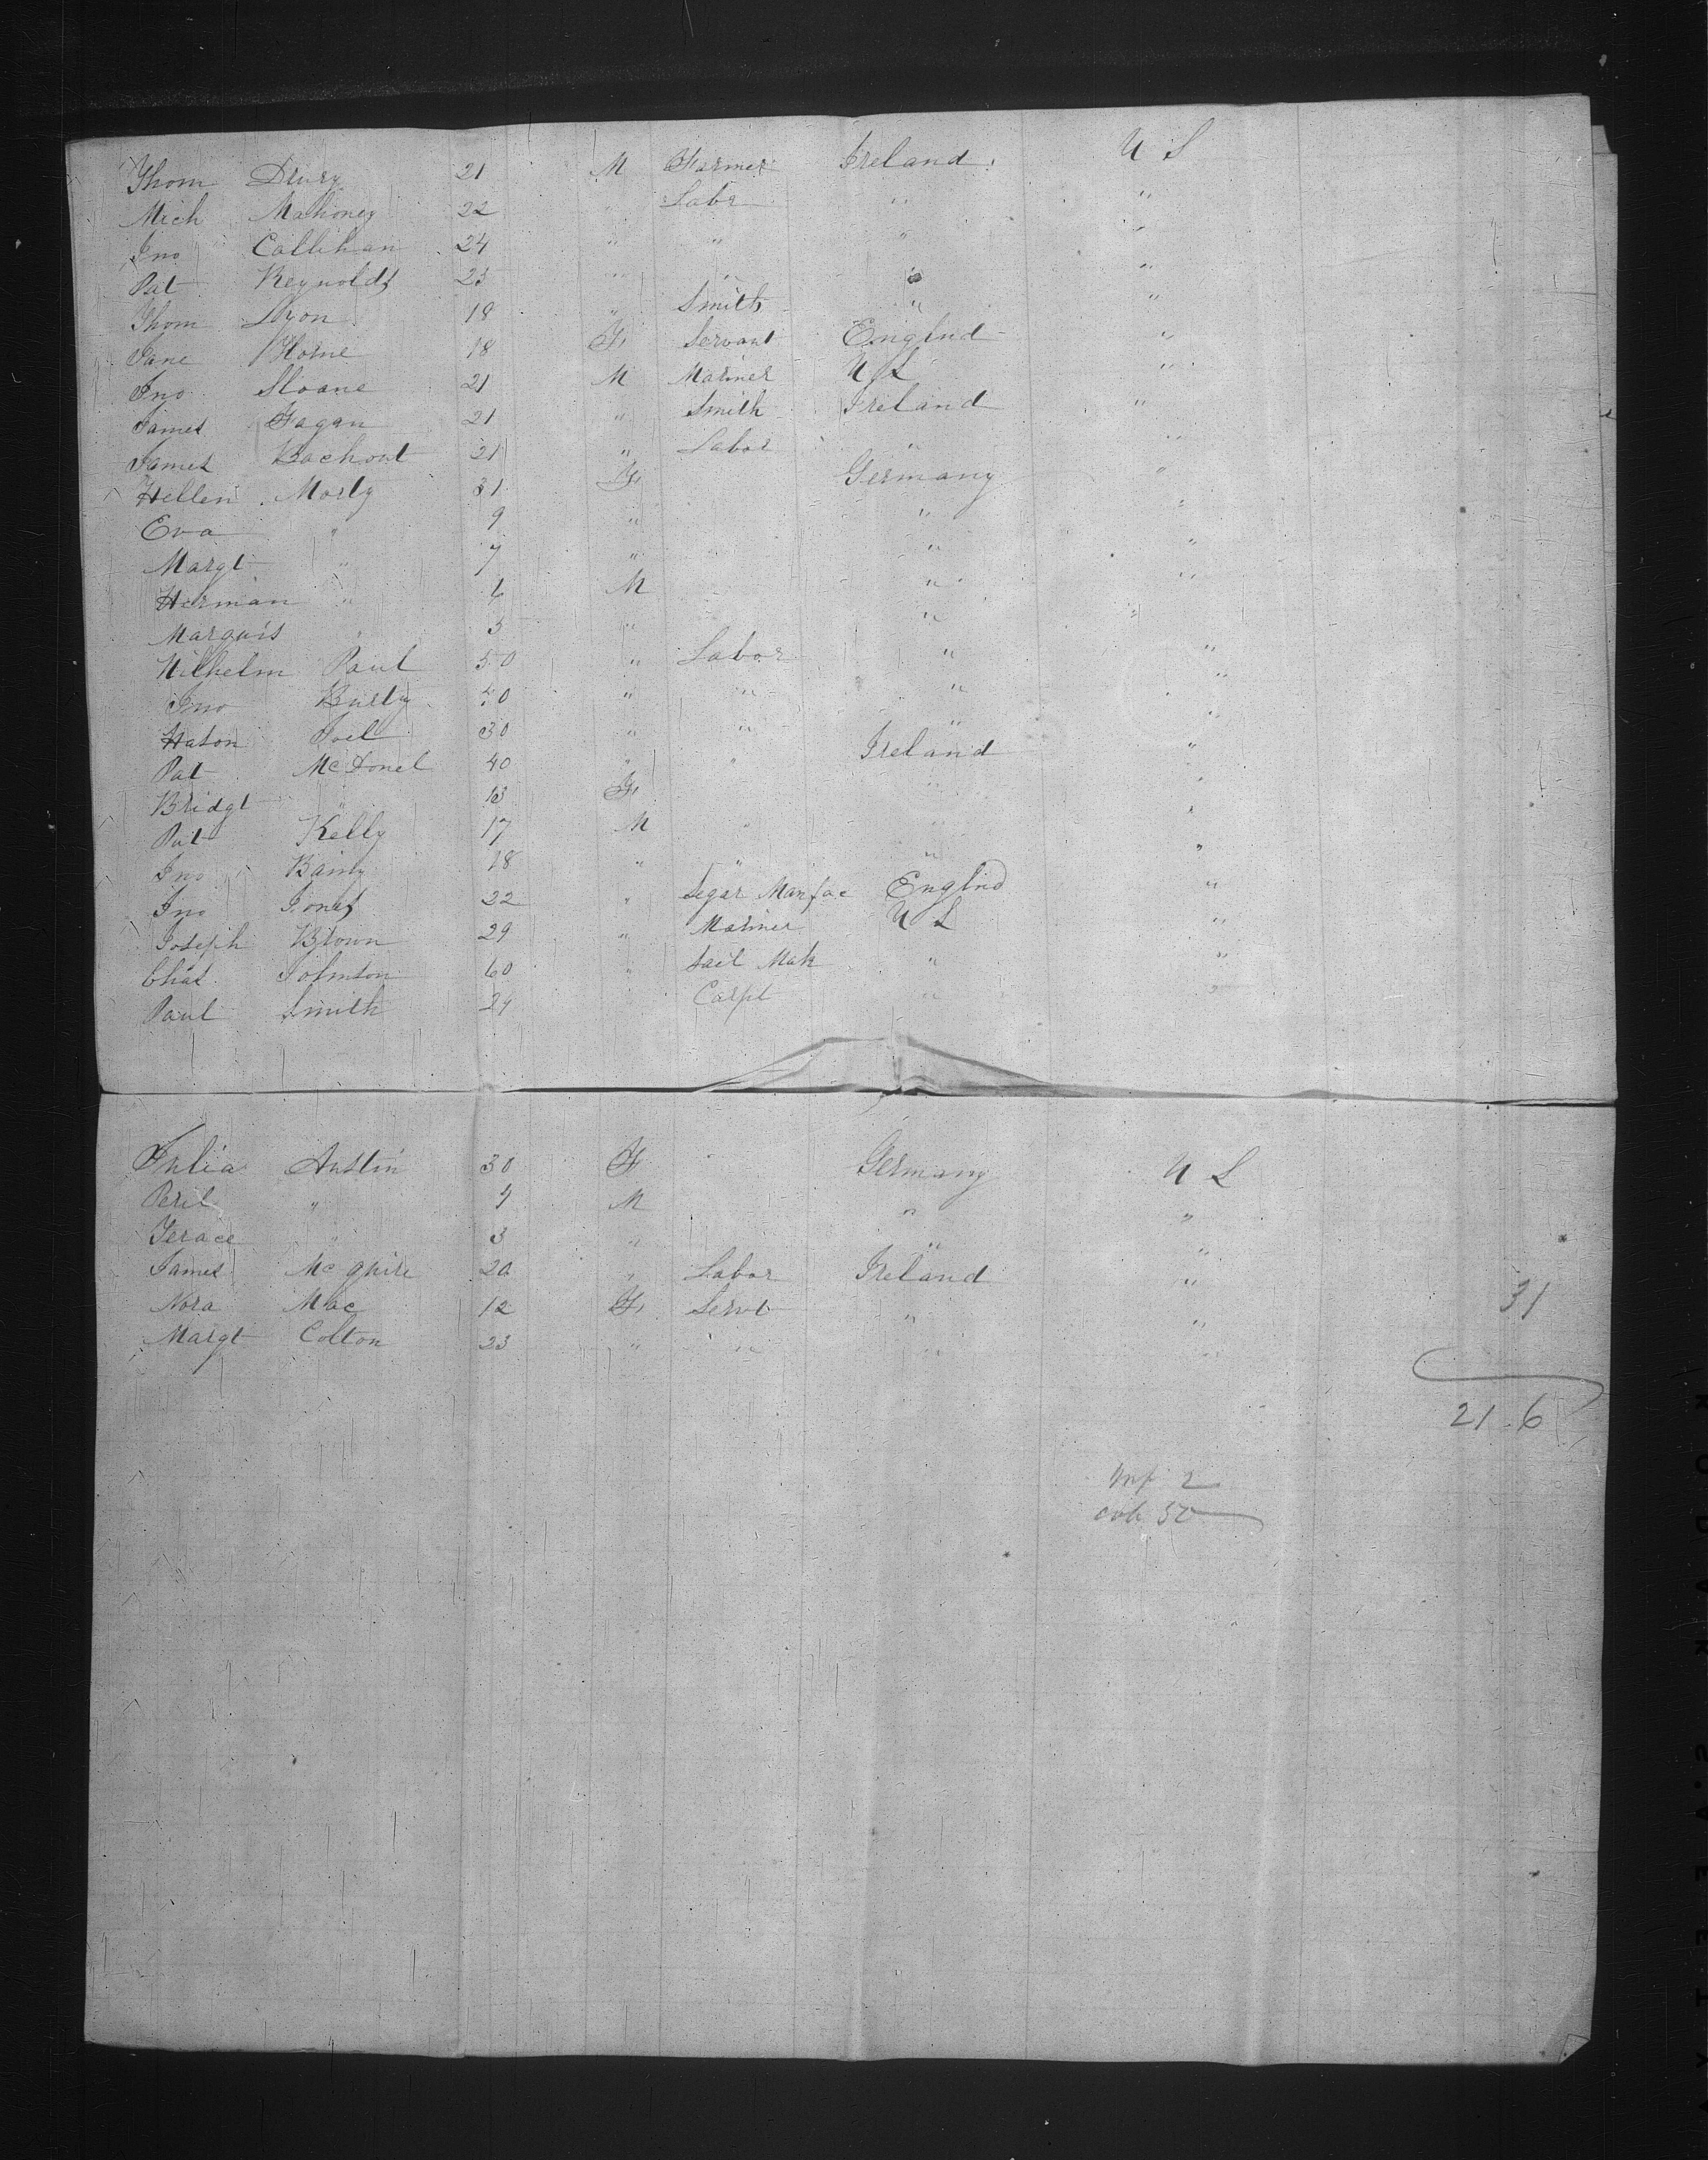 Thom Drury 21 M Farmer Ireland U S
Mich Mahoney 22 " Labr " "
Jno Callihan 24 " " " "
Pat Reynolds 23 " " " "
Thom Lyon 18 " Smith " "
Jane Horne 18 F Servant Englnd "
Jno Sloane 21 M Mariner U S "
James Fagan 21 " Smith Ireland "
James 21 " Labor " "
Hellen Morly 31 F Germany "
Eva " 9 " " "
Margt " 7 " " "
Herman " M " "
Marquis " " " "
Wilhelm Paul 50 " Labor " "
Jno " " " "
30 " " " "
Pat McDonel 40 " " Ireland "
Bridgt " F " "
Pat Kelly 17 M " " "
Jno 18 " " " "
Jno Jones 22 " Segar Manfac Englnd "
Joseph Brown 29 " Mariner U S "
Chas Johnson 60 " Sail Mak " "
Paul Smith 24 Carpt " "
Julia Austin 30 F Germany U S
" M " "
" 3 " " "
James McGuire 20 " Labor Ireland "
Nora Mac 12 F Servt " "
Margt Colton 23 " " " "
31
21.6
2
50